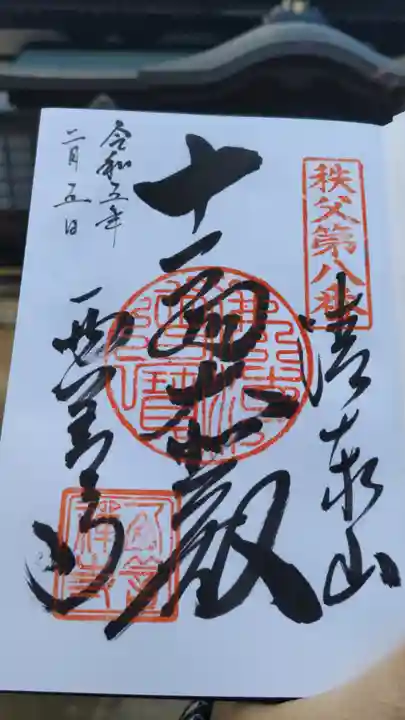 秩父第八番
清泰山
十一面大悲殿
西善寺
令和五年
二月五日